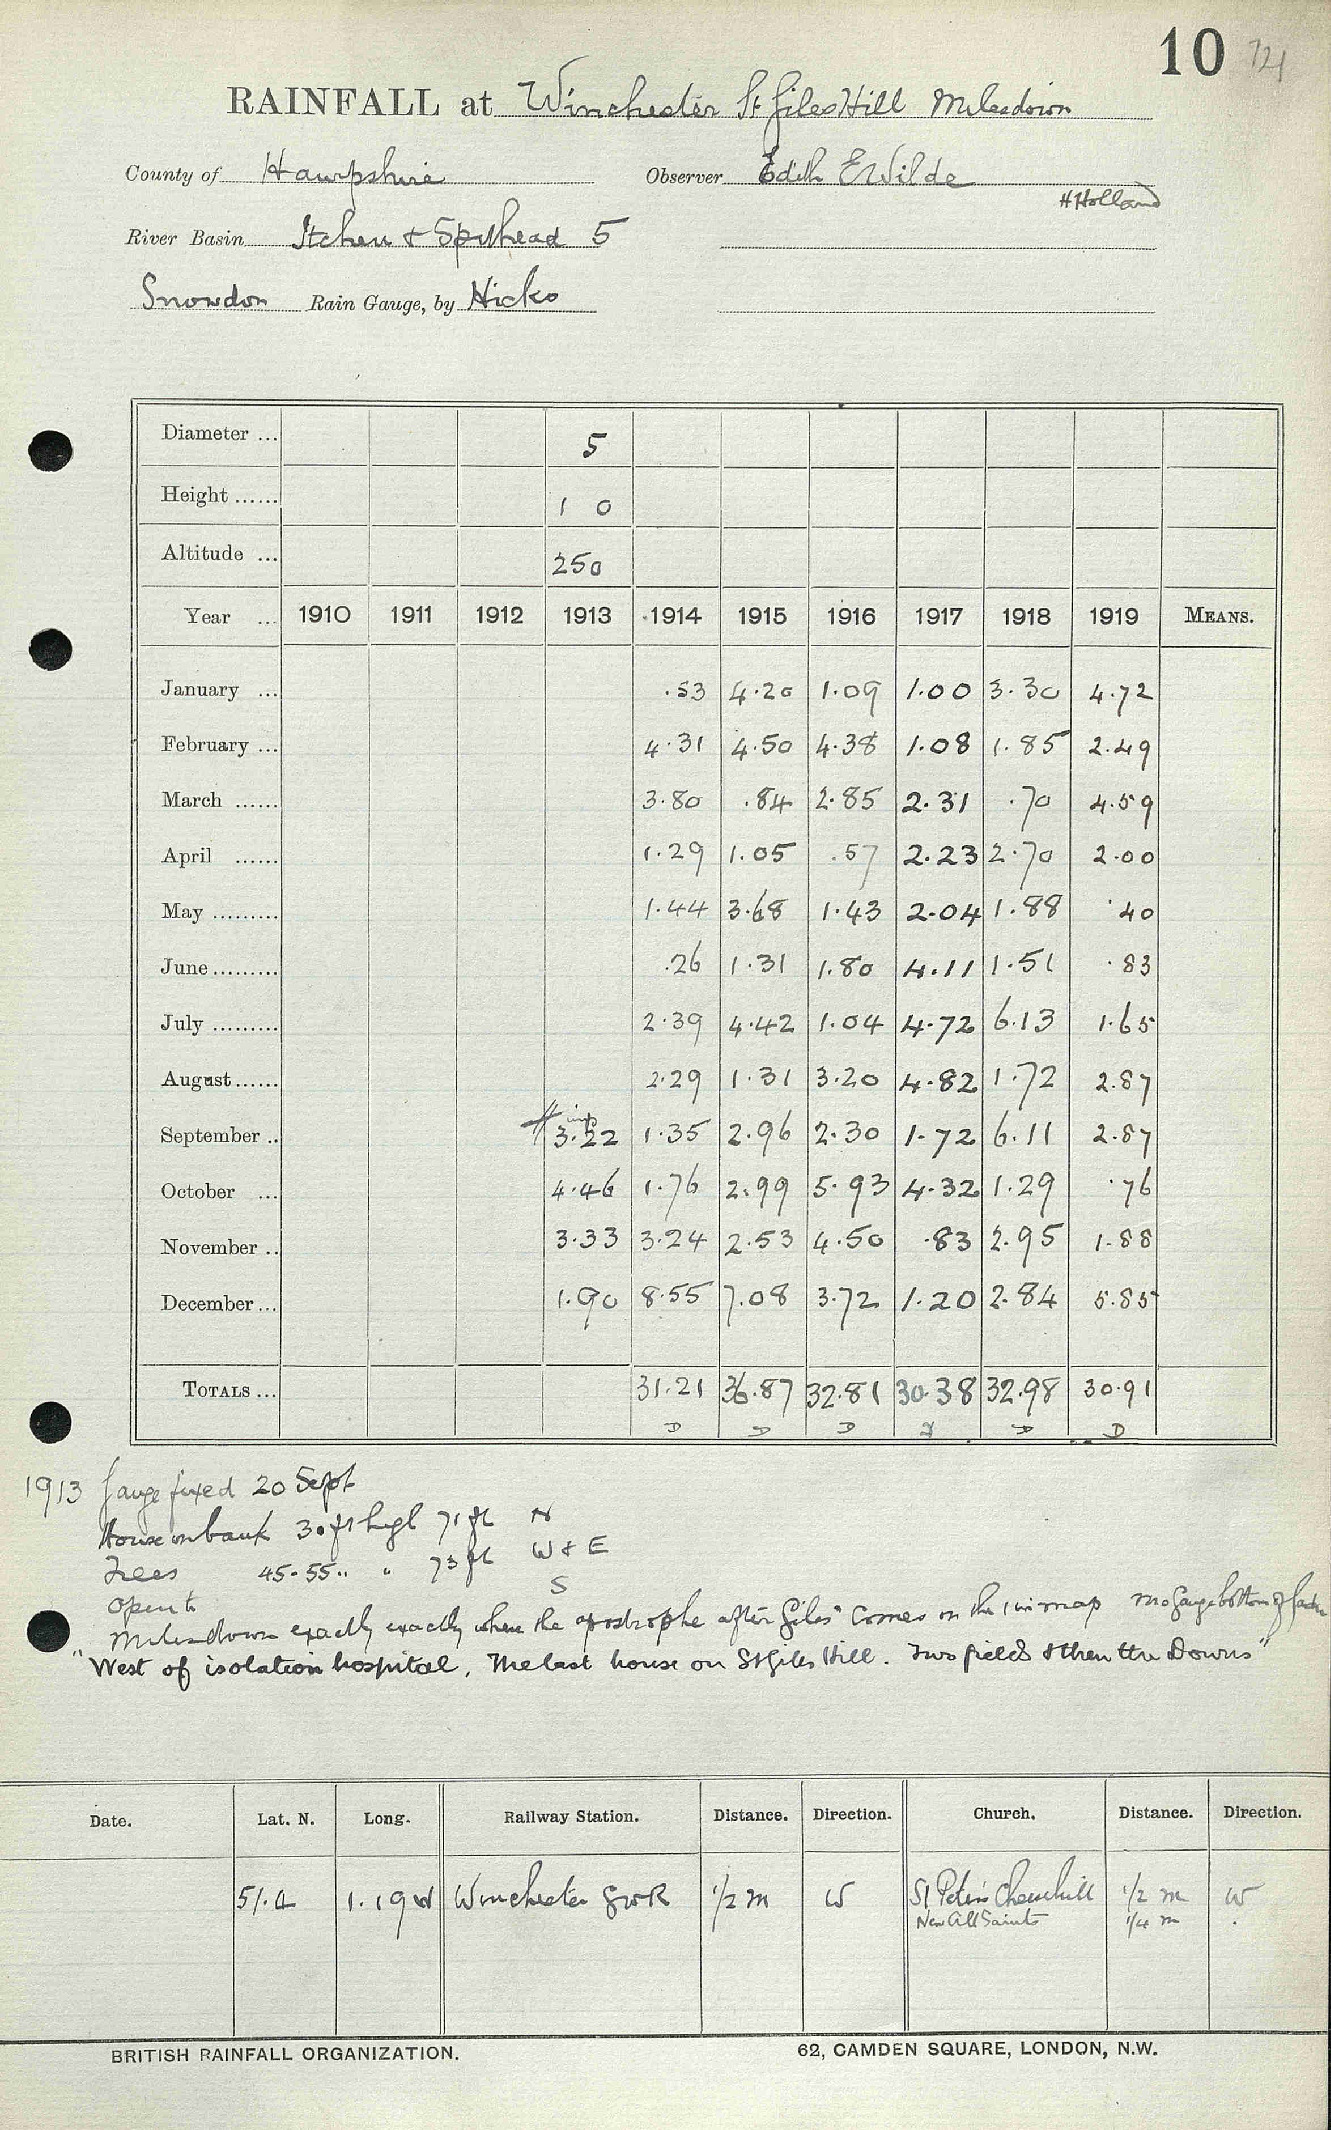 10 721
RAINFALL at Winchester St Giles Hill Milesdown
County of Hampshire Observer Edith E Wilde
H Holland
River Basin Itchen & Spithead 5
Snowdon Rain Gauge, by Hicks
Diameter ... 5
Height ...... 1 0
Altitude ... 250
Year ... 1910 1911 1912 1913 1914 1915 1916 1917 1918 1919 MEANS.
January ... .53 4.20 1.09 1.00 3.30 4.72
February ... 4.31 4.50 4.38 1.08 1.85 2.49
March ...... 3.80 .84 2.85 2.31 .70 4.59
April ...... 1.29 1.05 .57 2.23 2.70 2.00
May ......... 1.44 3.68 1.43 2.04 1.88 .40
June ......... .26 1.31 1.80 4.11 1.51 .83
July ......... 2.39 4.42 1.04 4.72 6.13 1.65
August ...... 2.29 1.31 3.20 4.82 1.72 2.87
September .. 3.22 1.35 2.96 2.30 1.72 6.11 2.87
October ... 4.46 1.76 2.99 5.93 4.32 1.29 .76
November .. 3.33 3.24 2.53 4.50 .83 2.95 1.88
December ... 1.90 8.55 7.08 3.72 1.20 2.84 5.85
TOTALS ... 31.21 36.87 32.81 30.38 32.98 30.91
D D D D D
1913 Gauge fixed 20 Sept
House on bank 30 ft high 71 ft N
Trees 45-55 " " 73 ft W & E
Open to S
"Milesdown exactly exactly where the apostrophe after Giles' comes on the 1 in map bottom of
West of isolation hospital. The last house on St Giles Hill. Two fields & then the Downs"
Date. Lat. N. Long. Railway Station. Distance. Direction. Church. Distance. Direction.
51.4 1.19 W Winchester GWR 1/2 m W St Peter's Cheesehill 1/2 m W
New All Saints 1/4 m
BRITISH RAINFALL ORGANIZATION. 62, CAMDEN SQUARE, LONDON, N.W.